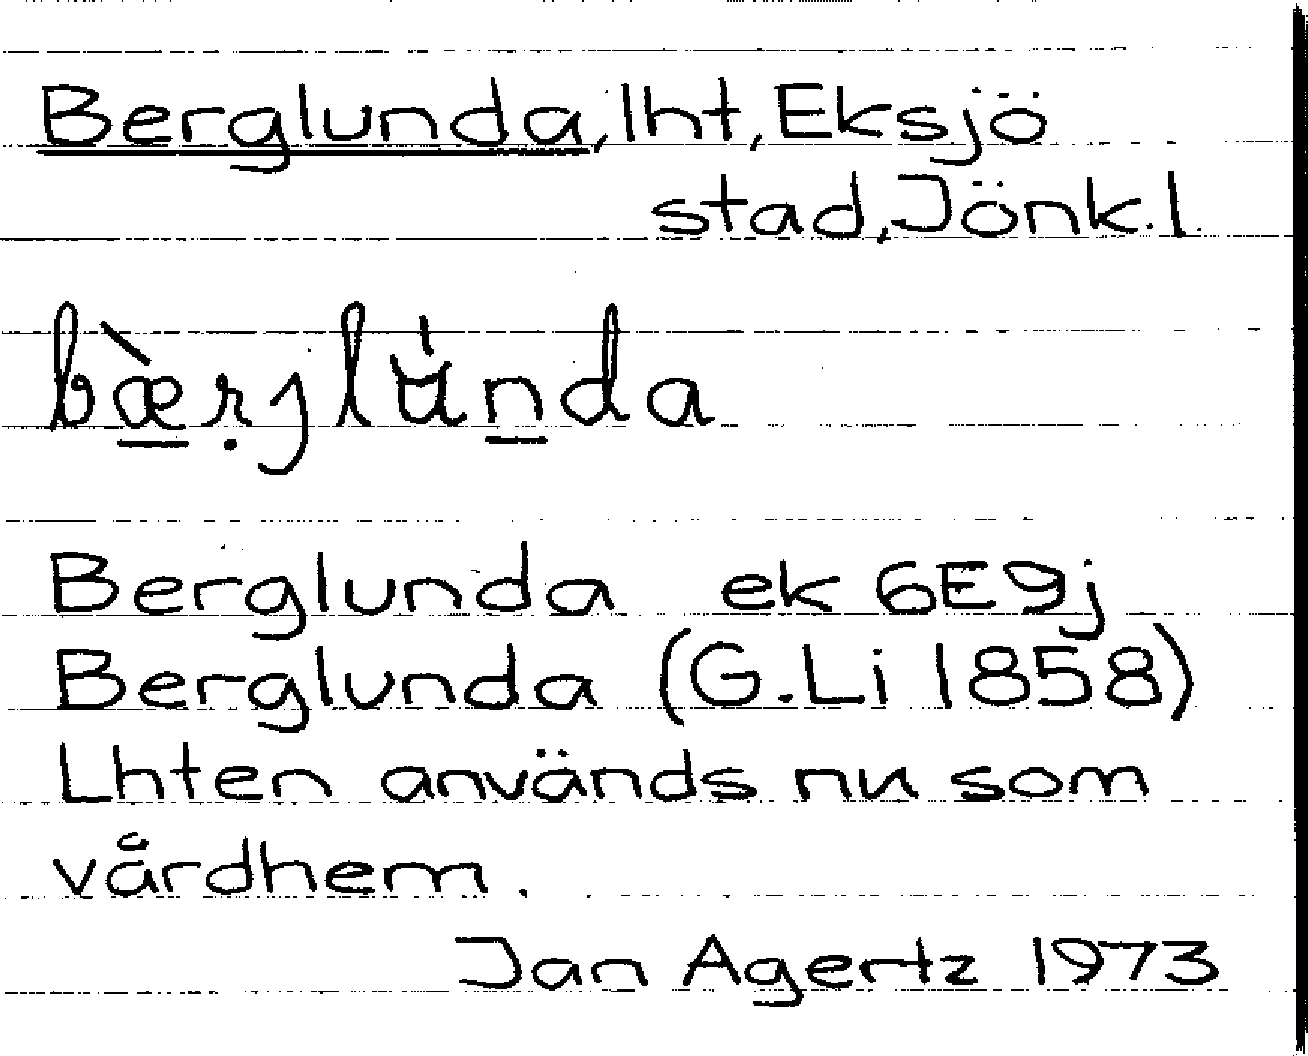 Berglunda, lht, Eksjö
stad, Jönk. l
bæ̀rjlu̍nda
Berglunda ek 6E9j
Berglunda (G.Li 1858)
Lhten används nu som
vårdhem.
Jan Agertz 1973